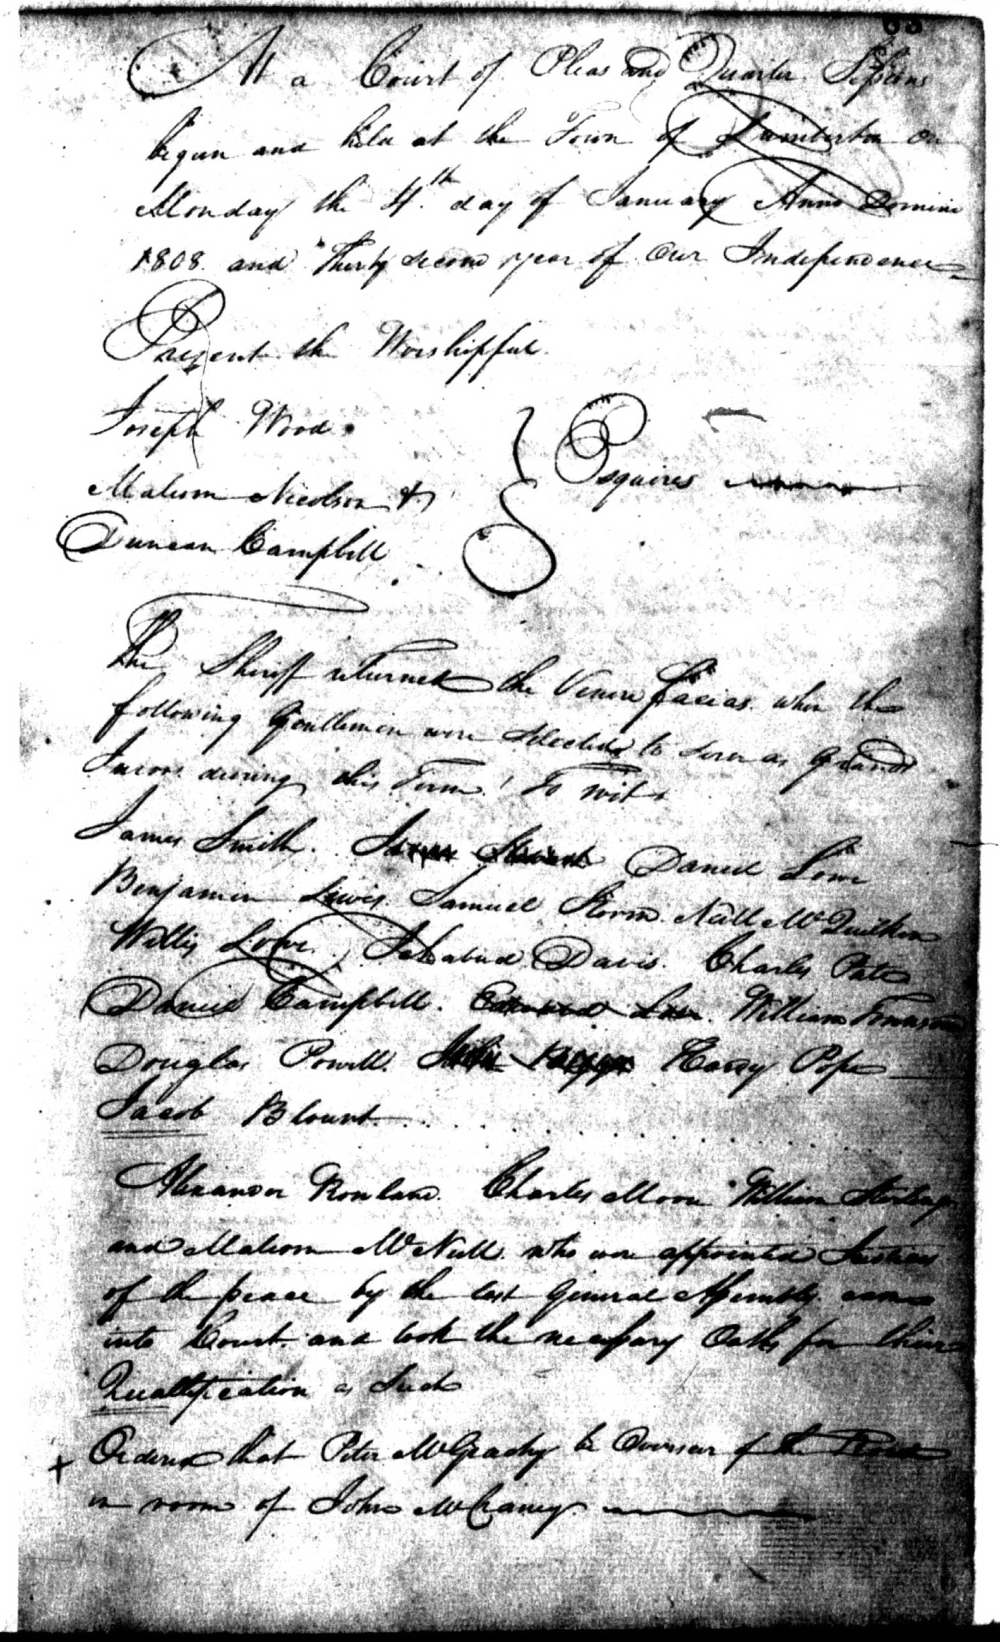 63
At a Court of Pleas and Quarter Sessions
begun and held at the Town of Lumberton on
Monday the 4th day of January Anno Domini
1808 and Thirty Second year of Our Independence
Present the Worshipful
Joseph Wood
Malcom Nicolson &
Duncan Campbell
Esquires
The Sheriff returned the Venire facias when the
following Gentlemen were selected to serve as Grand
Jurors during this Term! To Wit.
James Smith. Daniel Lowe
Benjamin Lewis. Samuel Storm. Neill McQuilkin
Willis Lowe. Davis. Charles Pate
Daniel Campbell. William
Douglas Powell. Harry Pope
Jacob Blount
Alexander Rowland. Charles Moore William
and Malcom McNeill who were appointed Justices
of the peace by the last General Assembly came
into Court and took the necessary Oaths for their
Quallification as Such
x Ordered that Peter McGeachy be Overseer of the Road
in room of John McCraney